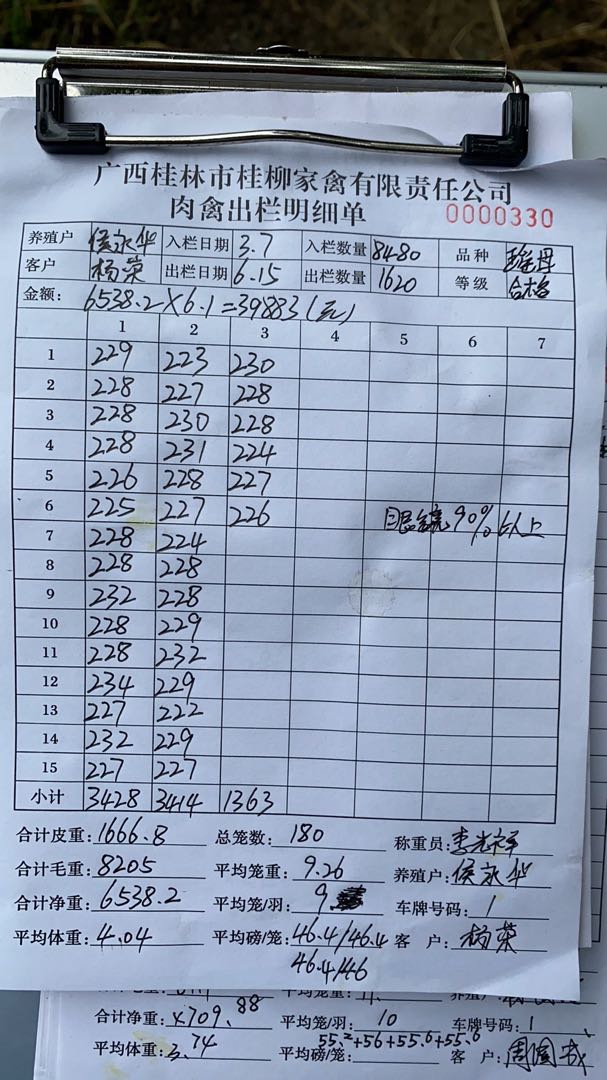 广西桂林市桂柳家禽有限责任公司
肉禽出栏明细单 0000330
养殖户 侯永华 入栏日期 3.7 入栏数量 8480 品种
客户 杨荣 出栏日期 6.15 出栏数量 1620 等级 合格
金额: 6538.2×6.1=39883(元)
1 2 3 4 5 6 7
1 229 223 230
2 228 227 228
3 228 230 228
4 228 231 224
5 226 228 227
6 225 227 226 90%以上
7 228 224
8 228 228
9 232 228
10 228 229
11 228 232
12 234 229
13 227 222
14 232 229
15 227 227
小计 3428 3414 1363
合计皮重: 1666.8 总笼数: 180 称重员: 李光祥
合计毛重: 8205 平均笼重: 9.26 养殖户: 侯永华
合计净重: 6538.2 平均笼/羽: 9 车牌号码: 1
平均体重: 4.04 平均磅/笼: 46.4/46.4 客 户: 杨荣
46.4/46
合计净重: 4709.88 平均笼/羽: 10 车牌号码: 1
平均体重: 3.74 平均磅/笼: 55.2+56+55.6+55.6 客 户: 周国成